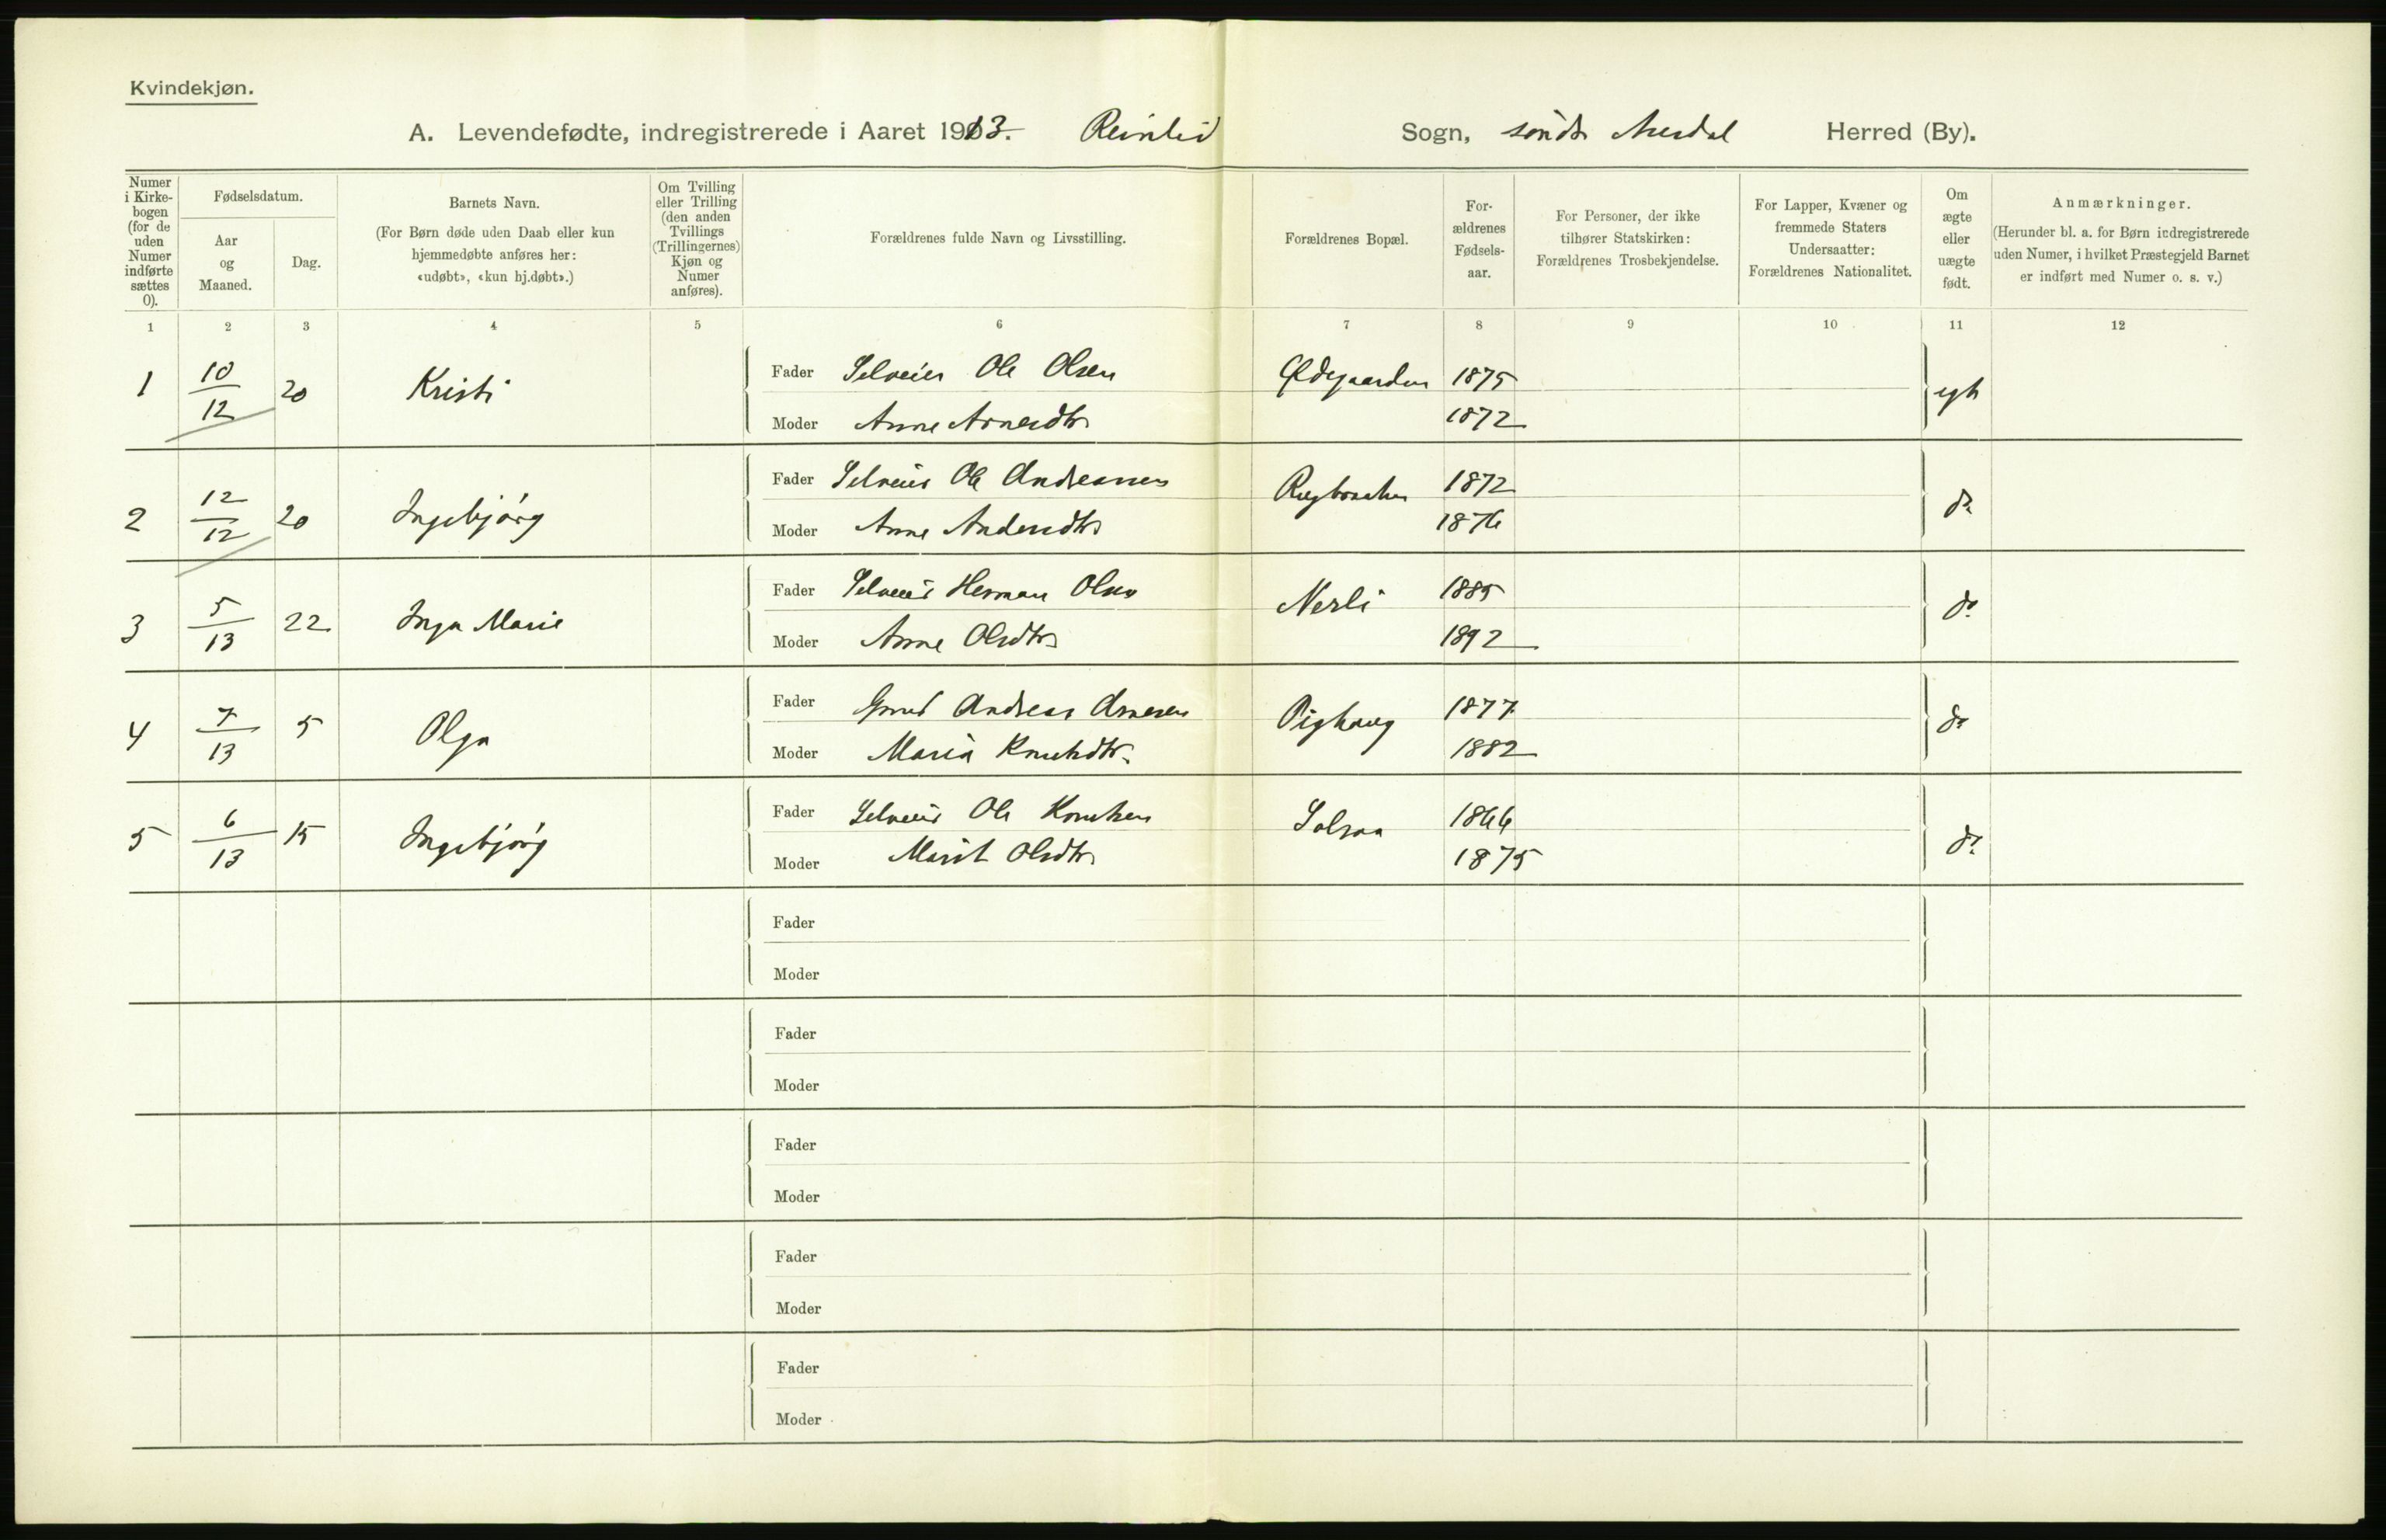 Kvindekjøn.
A. Levendefødte, indregistrerede i Aaret 1913. Reinlid Sogn, søndr Aurdal Herred (By).
Numer i Kirkebogen (for de uden Numer indførte sættes 0).
Fødselsdatum.
Aar og Maaned.
Dag.
Barnets Navn.
(For Børn døde uden Daab eller kun hjemmedøbte anføres her: «udøbt», «kun hj.døbt».)
Om Tvilling eller Trilling (den anden Tvillings (Trillingernes) Kjøn og Numer anføres).
Forældrenes fulde Navn og Livsstilling.
Forældrenes Bopæl.
Forældrenes Fødselsaar.
For Personer, der ikke tilhører Statskirken: Forældrenes Trosbekjendelse.
For Lapper, Kvæner og fremmede Staters Undersaatter: Forældrenes Nationalitet.
Om ægte eller uægte født.
Anmærkninger.
(Herunder bl. a. for Børn indregistrerede uden Numer, i hvilket Præstegjeld Barnet er indført med Numer o. s. v.)
1 2 3 4 5 6 7 8 9 10 11 12
1 10/12 20 Kristi Fader Selveier Ole Olsen Ødegaarden 1875 egt
Moder Anne Arnesdtr 1872
2 12/12 20 Ingebjørg Fader Selveier Ole Andreassen 1872 do
Moder Anne Andersdtr 1876
3 5/13 22 Inga Marie Fader Selveier Herman Olsen Nerli 1885 do
Moder Anne Olsdtr 1892
4 7/13 5 Olga Fader Andreas Arnesen Pighaug 1877 do
Moder Maria Knutsdtr. 1882
5 6/13 15 Ingebjørg Fader Selveier Ole Knutsen 1866 do
Moder Marit Olsdtr 1875
Fader
Moder
Fader
Moder
Fader
Moder
Fader
Moder
Fader
Moder